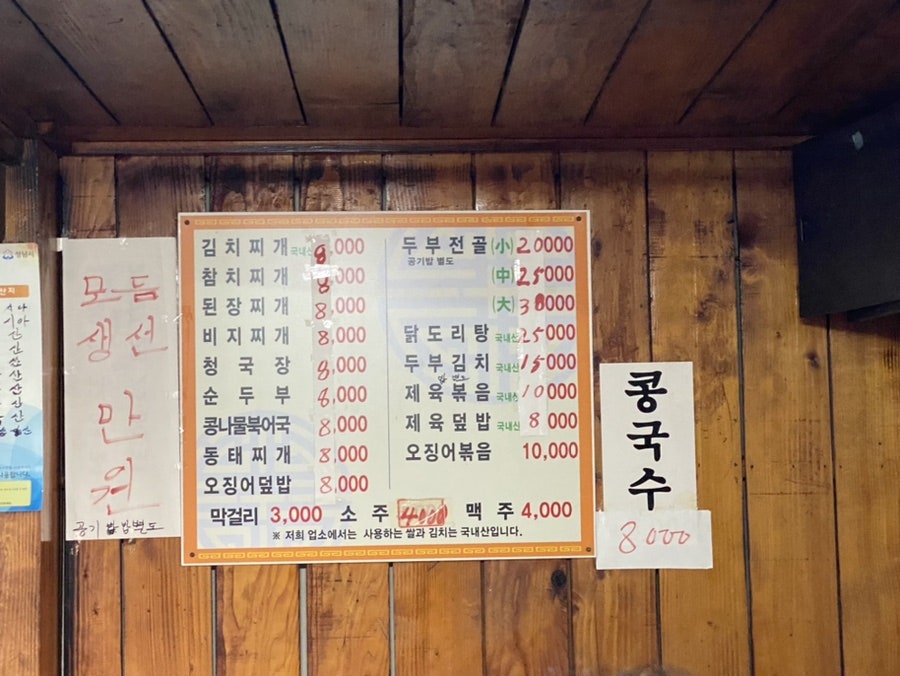 모듬
생선
만
원
공기밥별도
김치찌개 국내산 8,000
참치찌개 8,000
된장찌개 8,000
비지찌개 8,000
청국장 8,000
순두부 8,000
콩나물북어국 8,000
동태찌개 8,000
오징어덮밥 8,000
두부전골 (小) 20000
공기밥 별도
(中) 25000
(大) 30000
닭도리탕 국내산 25000
두부김치 국내산 15000
제육볶음 국내산 10000
제육덮밥 국내산 8000
오징어볶음 10,000
막걸리 3,000 소주 4000 맥주 4,000
※ 저희 업소에서는 사용하는 쌀과 김치는 국내산입니다.
콩국수
8000